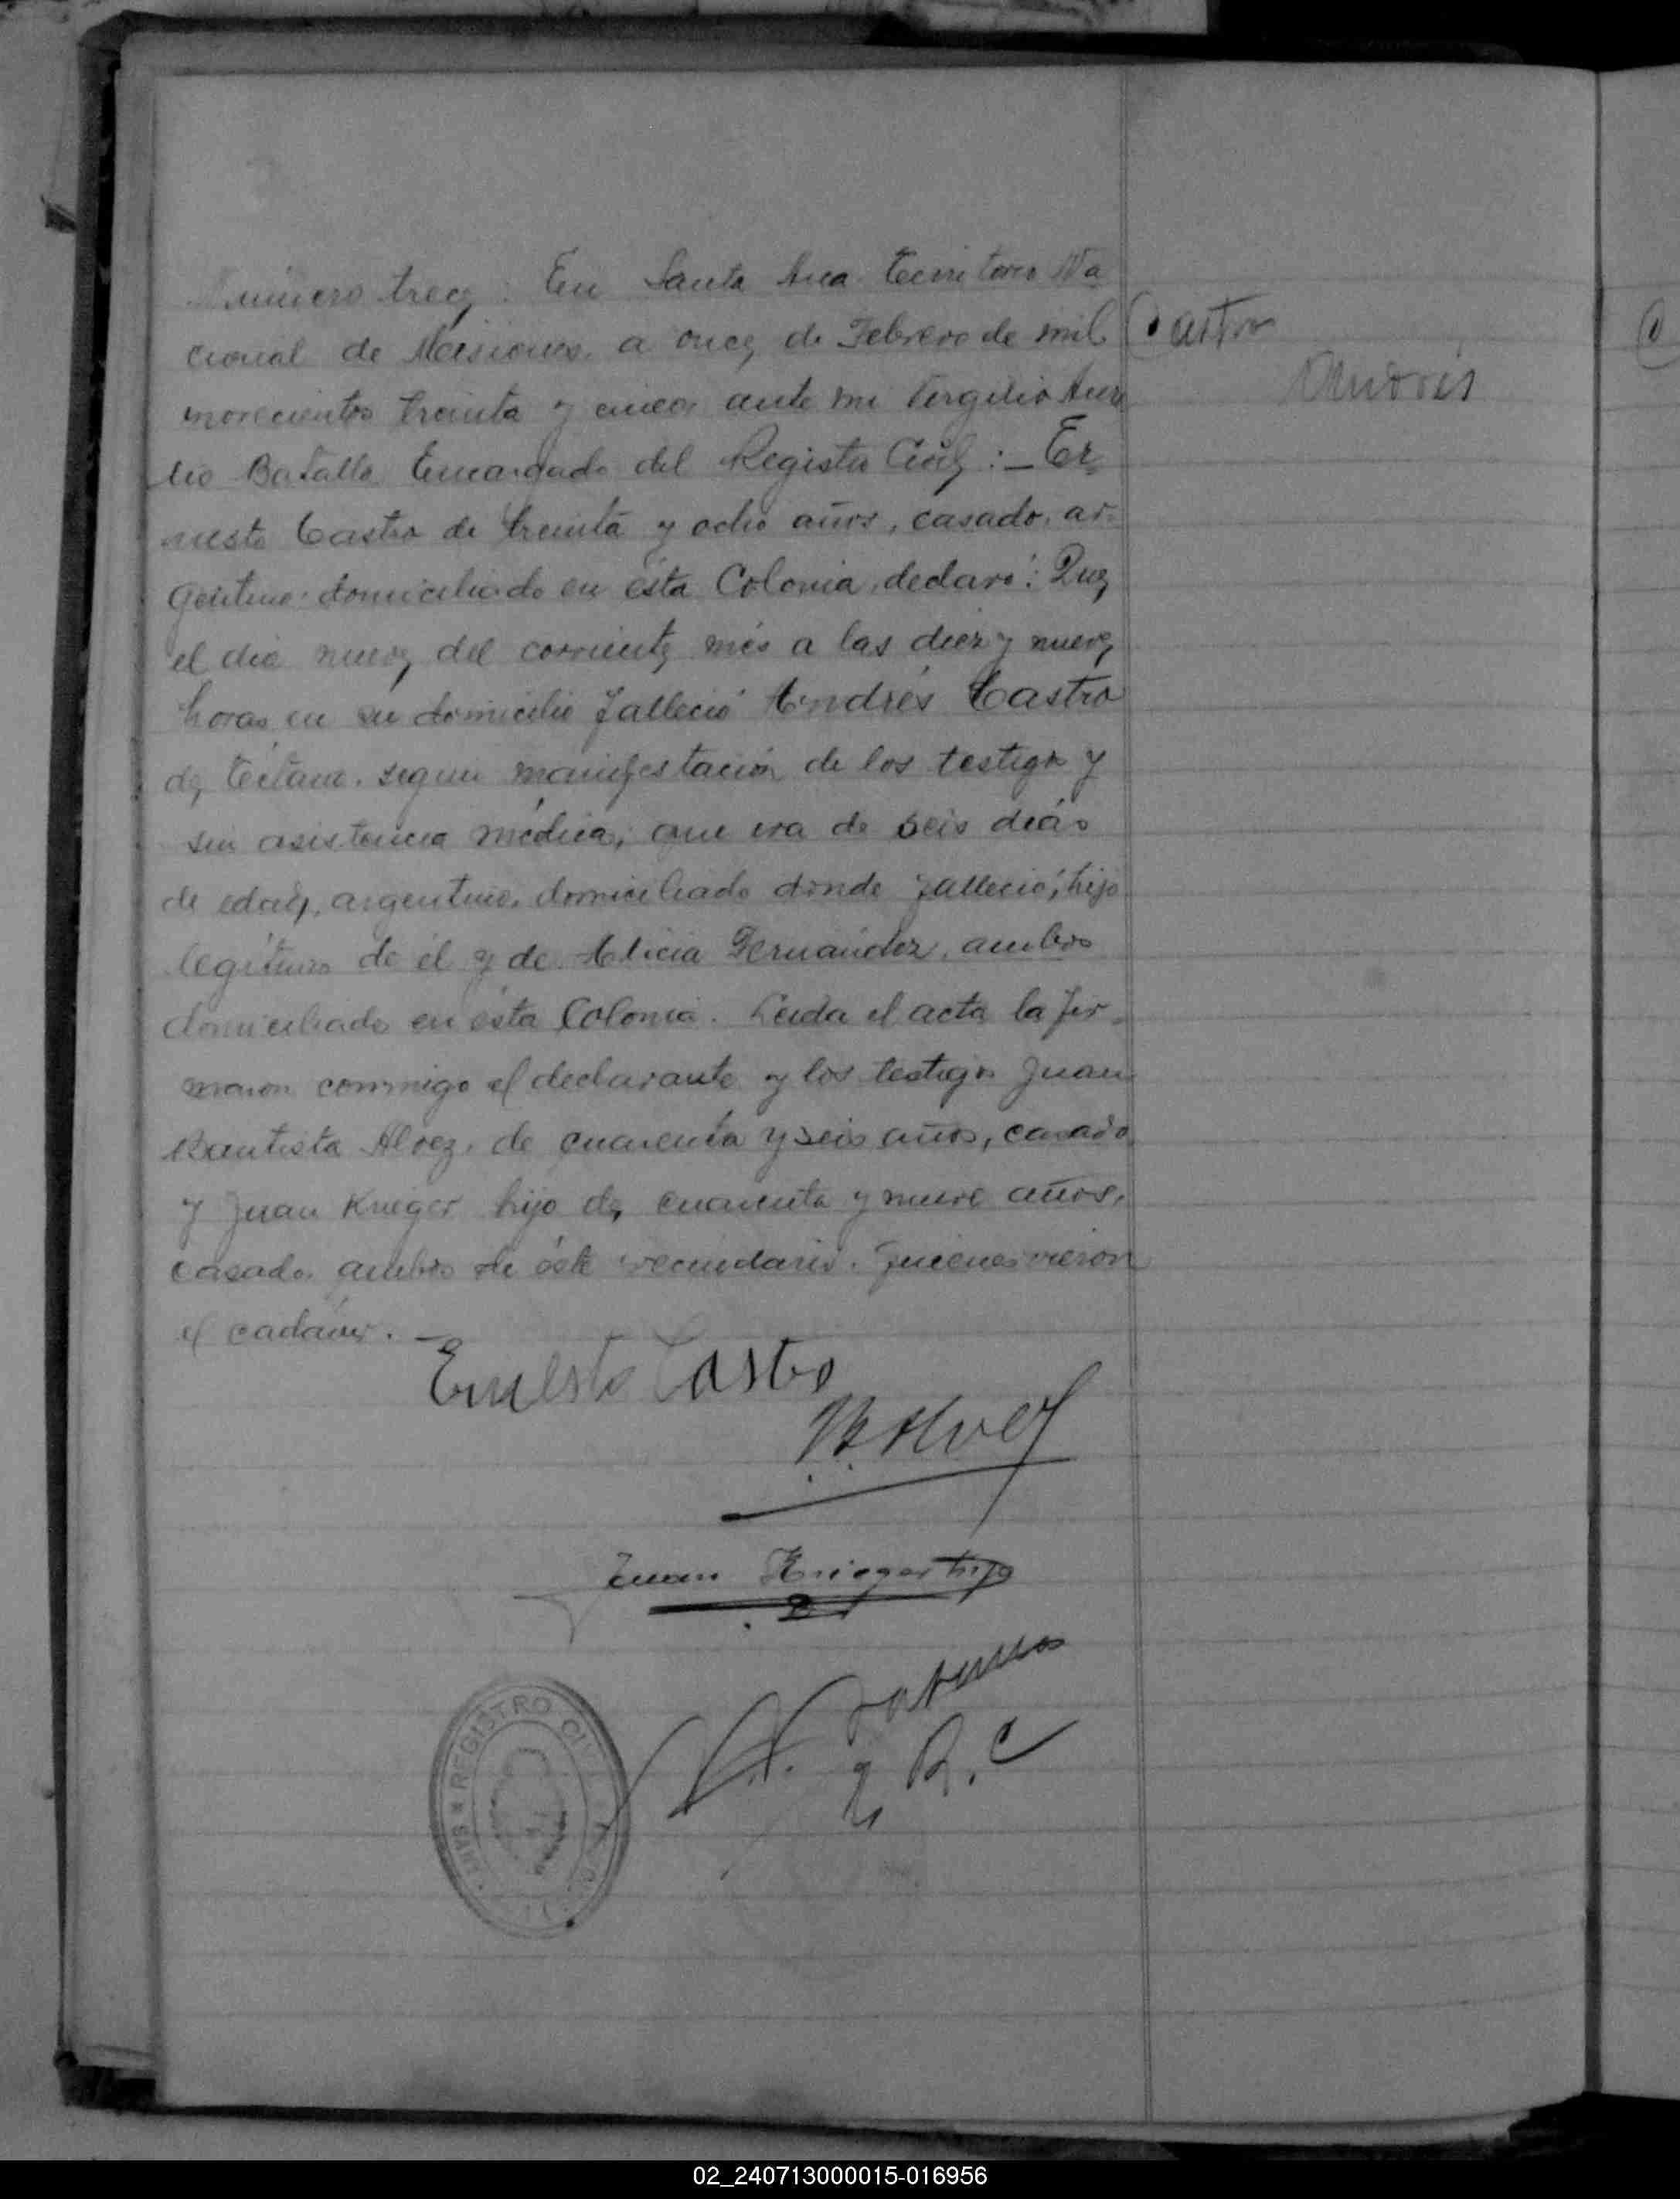 Número trece. En Santa Ana Territorio Na
cional de Misiones, a once de Febrero de mil
novecientos treinta y cinco, ante mi Virgilio Aure
lio Batalla Encargado del Registro Civil: — Er
nesto Castro de treinta y ocho años, casado, ar-
gentino domiciliado en ésta Colonia, declaró: Que
el día nueve del corriente més a las diez y nueve
horas en su domicilio falleció Andrés Castro
de tétano, segun manifestación de los testigos y
sin asistencia médica, que era de seis días
de edad, argentino, domiciliado donde falleció, hijo
legítimo de él y de Alicia Fernandez, ambos
domiciliado en ésta Colonia. Leida el acta la fir-
maron conmigo el declarante y los testigos Juan
Bautista Alvez, de cuarenta y seis años, casado
y Juan Krieger hijo de cuarenta y nueve años,
casado, ambos de éste vecindario. quienes vieron
el cadáver. —
Castro
Andrés
Ernesto Castro
B Alvez
Juan Krieger hijo
R. C
REGISTRO CIVIL
02_240713000015-016956